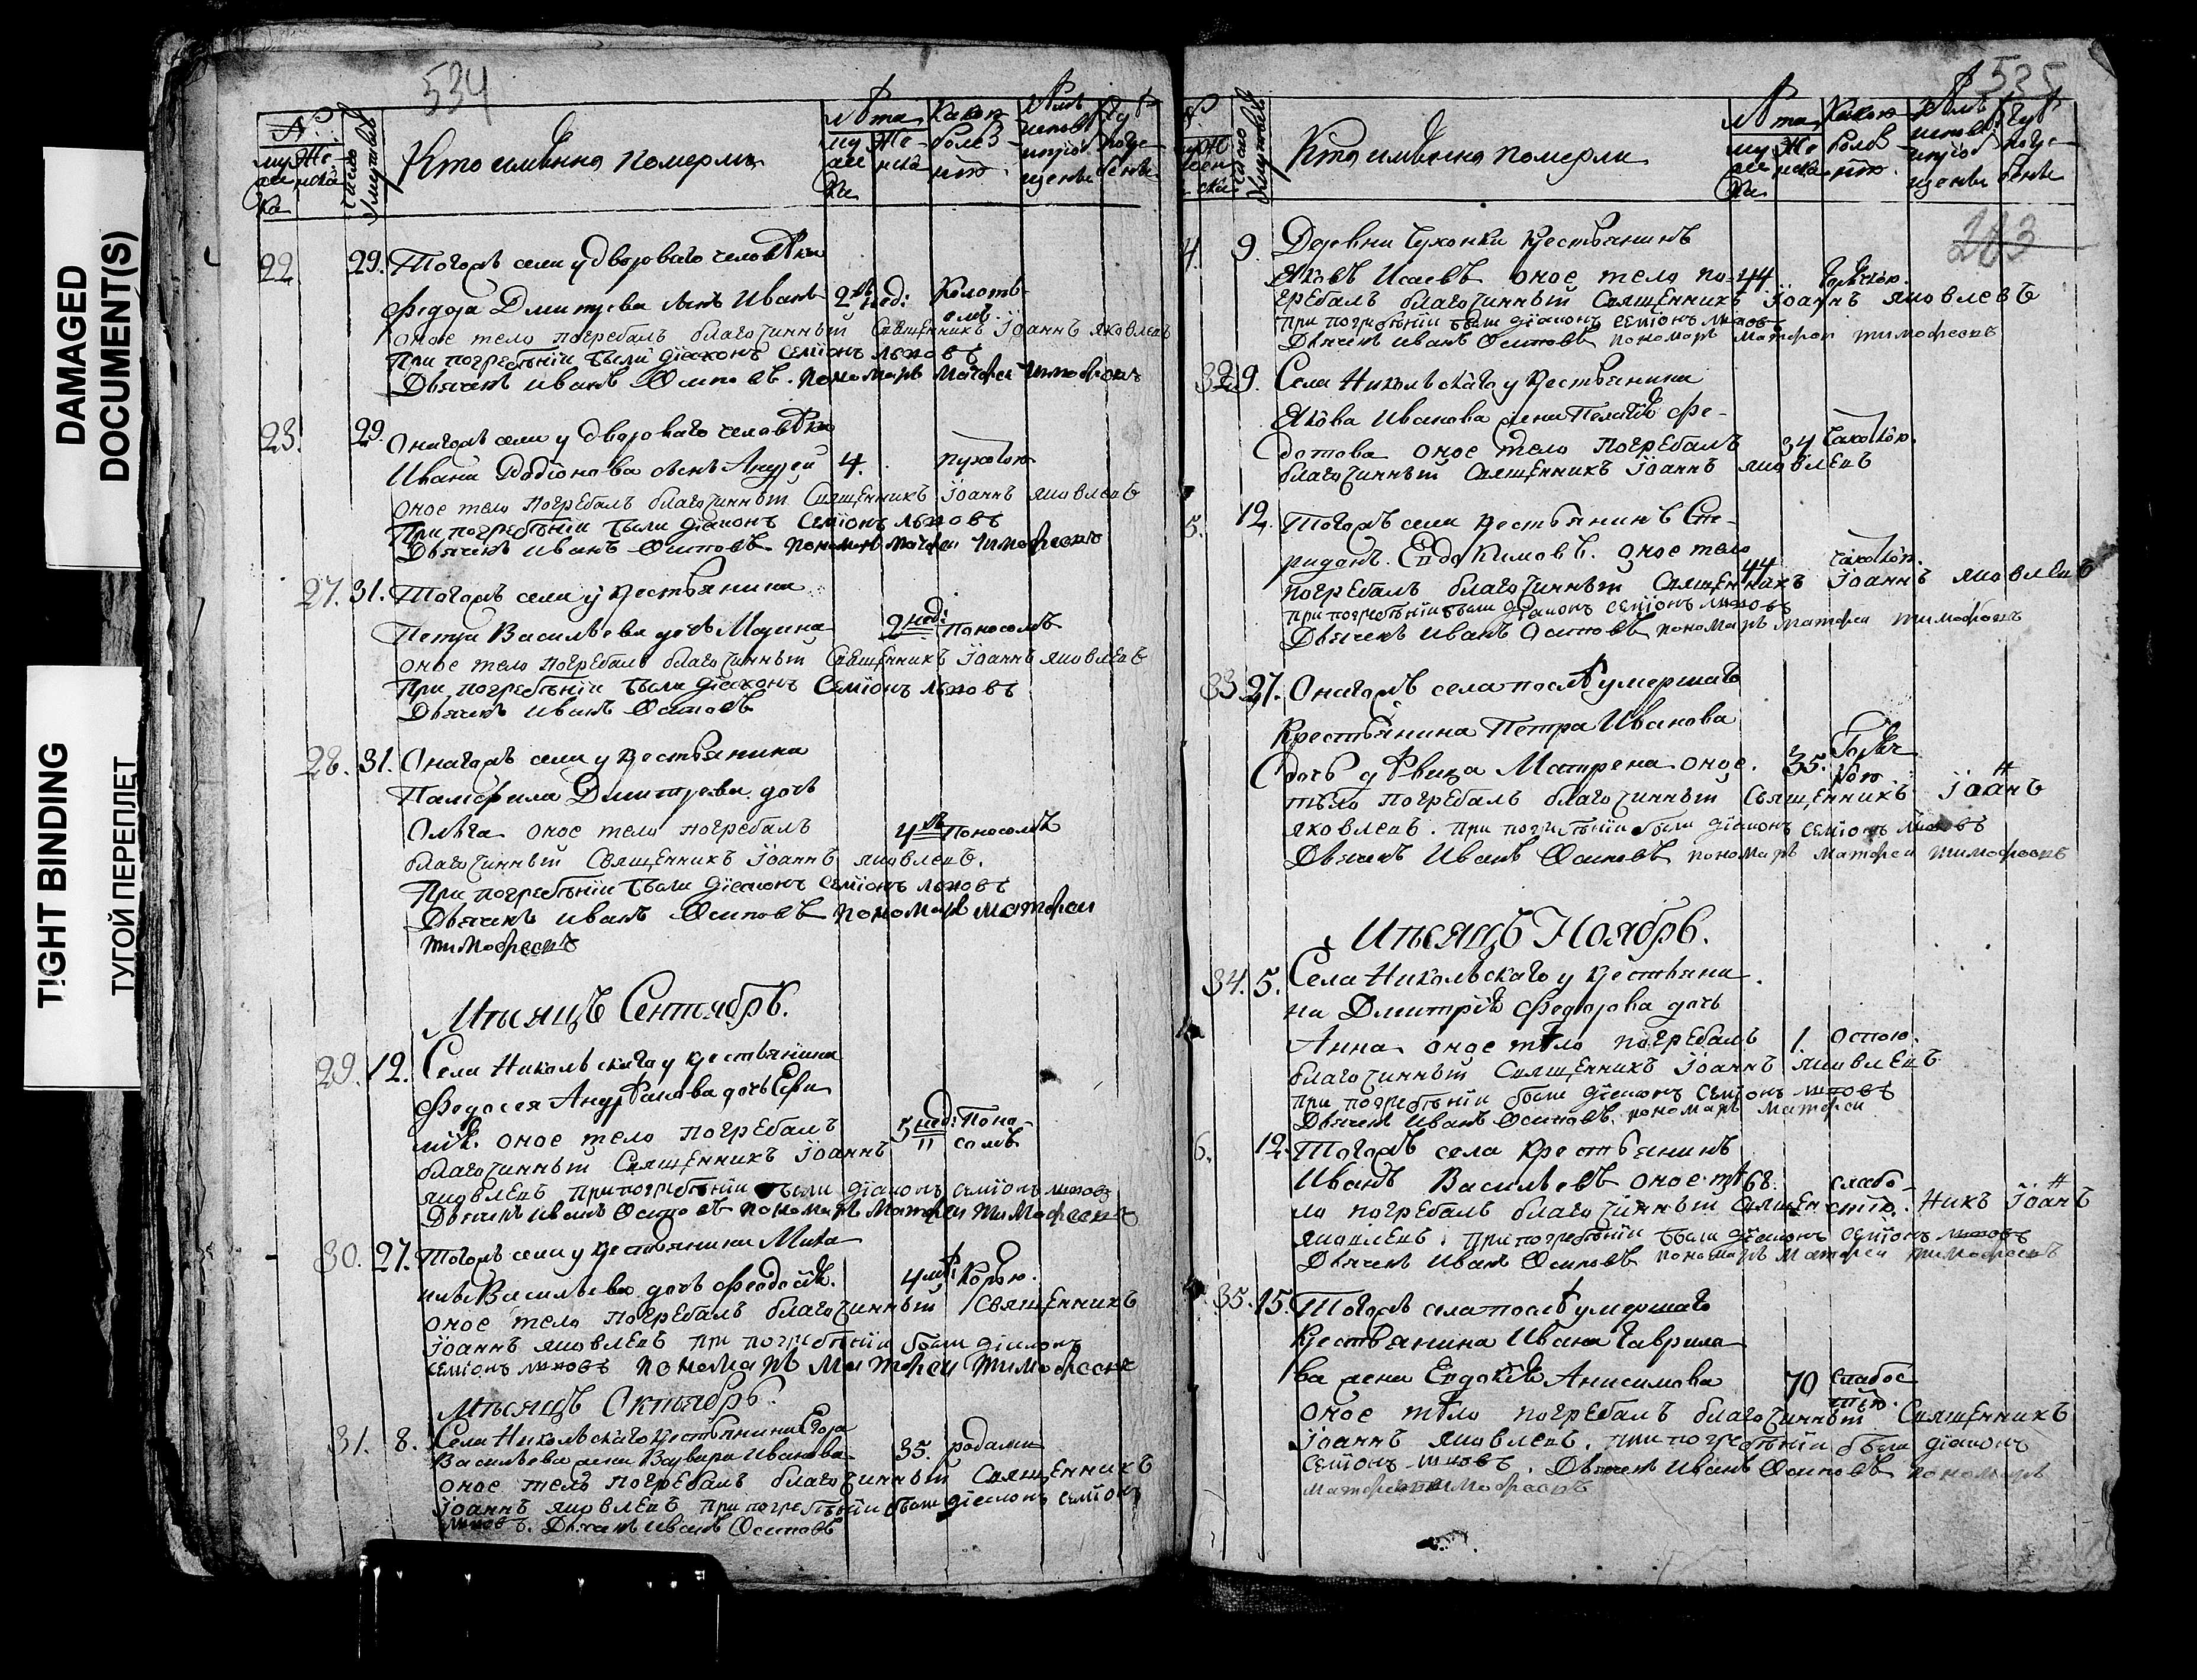 DAMAGED
DOCUMENT(S)
TIGHT BINDING
ТУГОЙ ПЕРЕПЛЕТ
534
Кто имянно померли
22. 29. Тогожъ села у двороваго человѣка
Федора Дмитрева сынъ Иванъ 2 нед: Колотьемъ.
оное тело погребалъ благочинный Священникъ Іоаннъ Яковлевъ
При погребѣніи были діаконъ Семіонъ Львовъ
Дьячекъ Иванъ Осиповъ. пономарь Матфеи Тимофеевъ
23. 29. Оногожъ села у двороваго человѣка
Ивана Родіонова сынъ Андреи 4. пухотою
оное тело погребалъ благочинный Священникъ Іоаннъ Яковлевъ
При погребѣніи были діаконъ Семіонъ Львовъ
Дьячекъ Иванъ Осиповъ пономарь Матфеи Тимофеевъ
27. 31. Тогожъ села у крестьянина
Петра Васильева дочь Марина 2 нед: Поносомъ
оное тело погребалъ благочинный Священникъ Іоаннъ Яковлевъ
При погребѣніи были діаконъ Семіонъ Львовъ
Дьячекъ Иванъ Осиповъ
28. 31. Оногожъ села у крестьянина
Памфила Дмитрева дочь
Ольга оное тело погребалъ 4 Поносомъ
благочинный Священникъ Іоаннъ Яковлевъ.
При погребѣніи были діаконъ Семіонъ Львовъ
Дьячекъ Иванъ Осиповъ пономарь Матфеи
Тимофеевъ
Мѣсяцъ Сентябрь.
29. 12. Села Никольскаго у крестьянина
Федосея Андреанова дочь Ефи
мія. оное тело погребалъ 5 нед: Поносомъ
благочинный Священникъ Іоаннъ
Яковлевъ При погребѣніи были діаконъ Семіонъ Львовъ
Дьячекъ Иванъ Осиповъ пономарь Матфеи Тимофеевъ
30. 27. Тогожъ села у крестьянина Миха
ила Васильева дочь Феодосія. 4 Корью.
оное тело погребалъ благочинный Священникъ
Іоаннъ Яковлевъ При погребѣніи были діаконъ
Семіонъ Львовъ пономарь Матфеи Тимофеевъ
Мѣсяцъ Октябрь.
31. 8. Села Никольскаго крестьянина Егора
Васильева жена Варвара Иванова 35. родами
оное тело погребалъ благочинный Священникъ
Іоаннъ Яковлевъ При погребѣніи были діаконъ Семіонъ
Львовъ. Дьячекъ Иванъ Осиповъ
535
Кто имянно померли
263
4. 9. Деревни Чухонки крестьянинъ
Яковъ Исаевъ оное тело по- 44 Горячкою.
гребалъ благочинный Священникъ Іоаннъ Яковлевъ
При погребѣніи были діаконъ Семіонъ Львовъ
Дьячекъ Иванъ Осиповъ пономарь Матфеи Тимофеевъ
32. 9. Села Никольскаго у крестьянина
Якова Иванова жена Пелагія Фе-
дотова оное тело погребалъ 34 Чахоткою.
благочинный Священникъ Іоаннъ Яковлевъ
5. 12. Тогожъ села крестьянинъ Спи-
ридонъ Евдокимовъ. оное тело 44 Чахоткою.
погребалъ благочинный Священникъ Іоаннъ Яковлевъ
При погребѣніи были діаконъ Семіонъ Львовъ
Дьячекъ Иванъ Осиповъ пономарь Матфеи Тимофеевъ
33. 27. Оногожъ села послѣ умершаго
Крестьянина Петра Иванова
дочь дѣвица Матрена оное. 35. Горячкою
тѣло погребалъ благочинный Священникъ Іоанъ
Яковлевъ. При погребѣніи были діаконъ Семіонъ Львовъ
Дьячекъ Иванъ Осиповъ пономарь Матфеи Тимофеевъ
Мѣсяцъ Ноябрь.
34. 5. Села Никольскаго у крестьяни
на Дмитрія Федорова дочь
Анна оное тѣло погребалъ 1. оспою.
благочинный Священникъ Іоаннъ Яковлевъ
При погребѣніи были діаконъ Семіонъ Львовъ
Дьячекъ Иванъ Осиповъ. пономарь Матфеи
6. 12. Тогожъ села крестьянинъ
Иванъ Васильевъ оное тѣ 68. слабо-
ло погребалъ благочинный Священстію. никъ Іоанъ
Яковлевъ. При погребѣніи были діаконъ Семіонъ Львовъ
Дьячекъ Иванъ Осиповъ пономарь Матфеи Тимофеевъ
35. 15. Тогожъ села послѣ умершаго
Крестьянина Ивана Гаврила
ва жена Евдокія Анисимова 70 слабостію.
оное тѣло погребалъ благочинный Священникъ
Іоаннъ Яковлевъ. при погребѣніи были діаконъ
Семіонъ Львовъ. Дьячекъ Иванъ Осиповъ пономарь
Матфеи Тимофеевъ